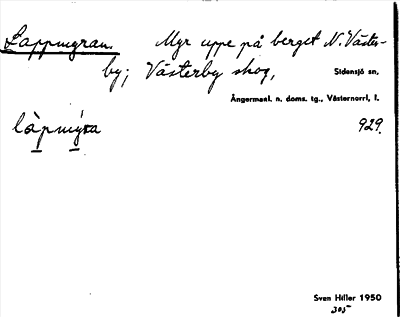 Lappmyran. Myr uppe på berget N. Väster-
by; Västerby skog, Sidensjö sn,
Ångermanl. n. doms. tg., Västernorrl. l.
làpmýra 929.
Sven Hiller 1950
305